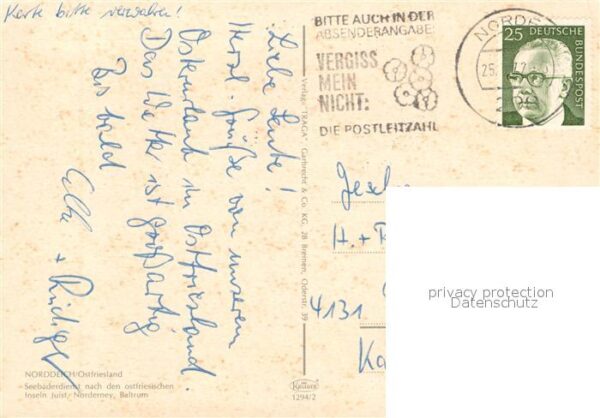 Karte bitte verwahren!
Liebe Leute!
Herzl. Grüße von unserem
Osterurlaub in Ostfriesland.
Das Wetter ist großartig
Bis bald
Elke + Rüdiger
NORDDEICH/Ostfriesland
Seebäderdienst nach den ostfriesischen
Inseln Juist, Norderney, Baltrum
Verlag "RAGA" Garbrecht & Co. KG, 28 Bremen, Oderstr. 39
Krüger
1294/2
BITTE AUCH IN DER
ABSENDERANGABE:
VERGISS
MEIN
NICHT:
DIE POSTLEITZAHL
NORDE
25.
25 DEUTSCHE
BUNDESPOST
H. +
4131
privacy protection
Datenschutz